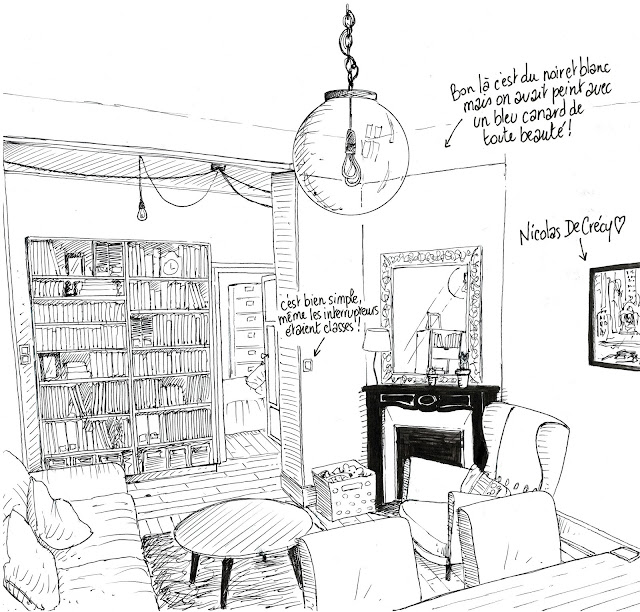 Bon là c'est du noir et blanc
mais on avait peint avec
un bleu canard de
toute beauté !
Nicolas De Crécy ♡
c'est bien simple,
même les interrupteurs
étaient classes !